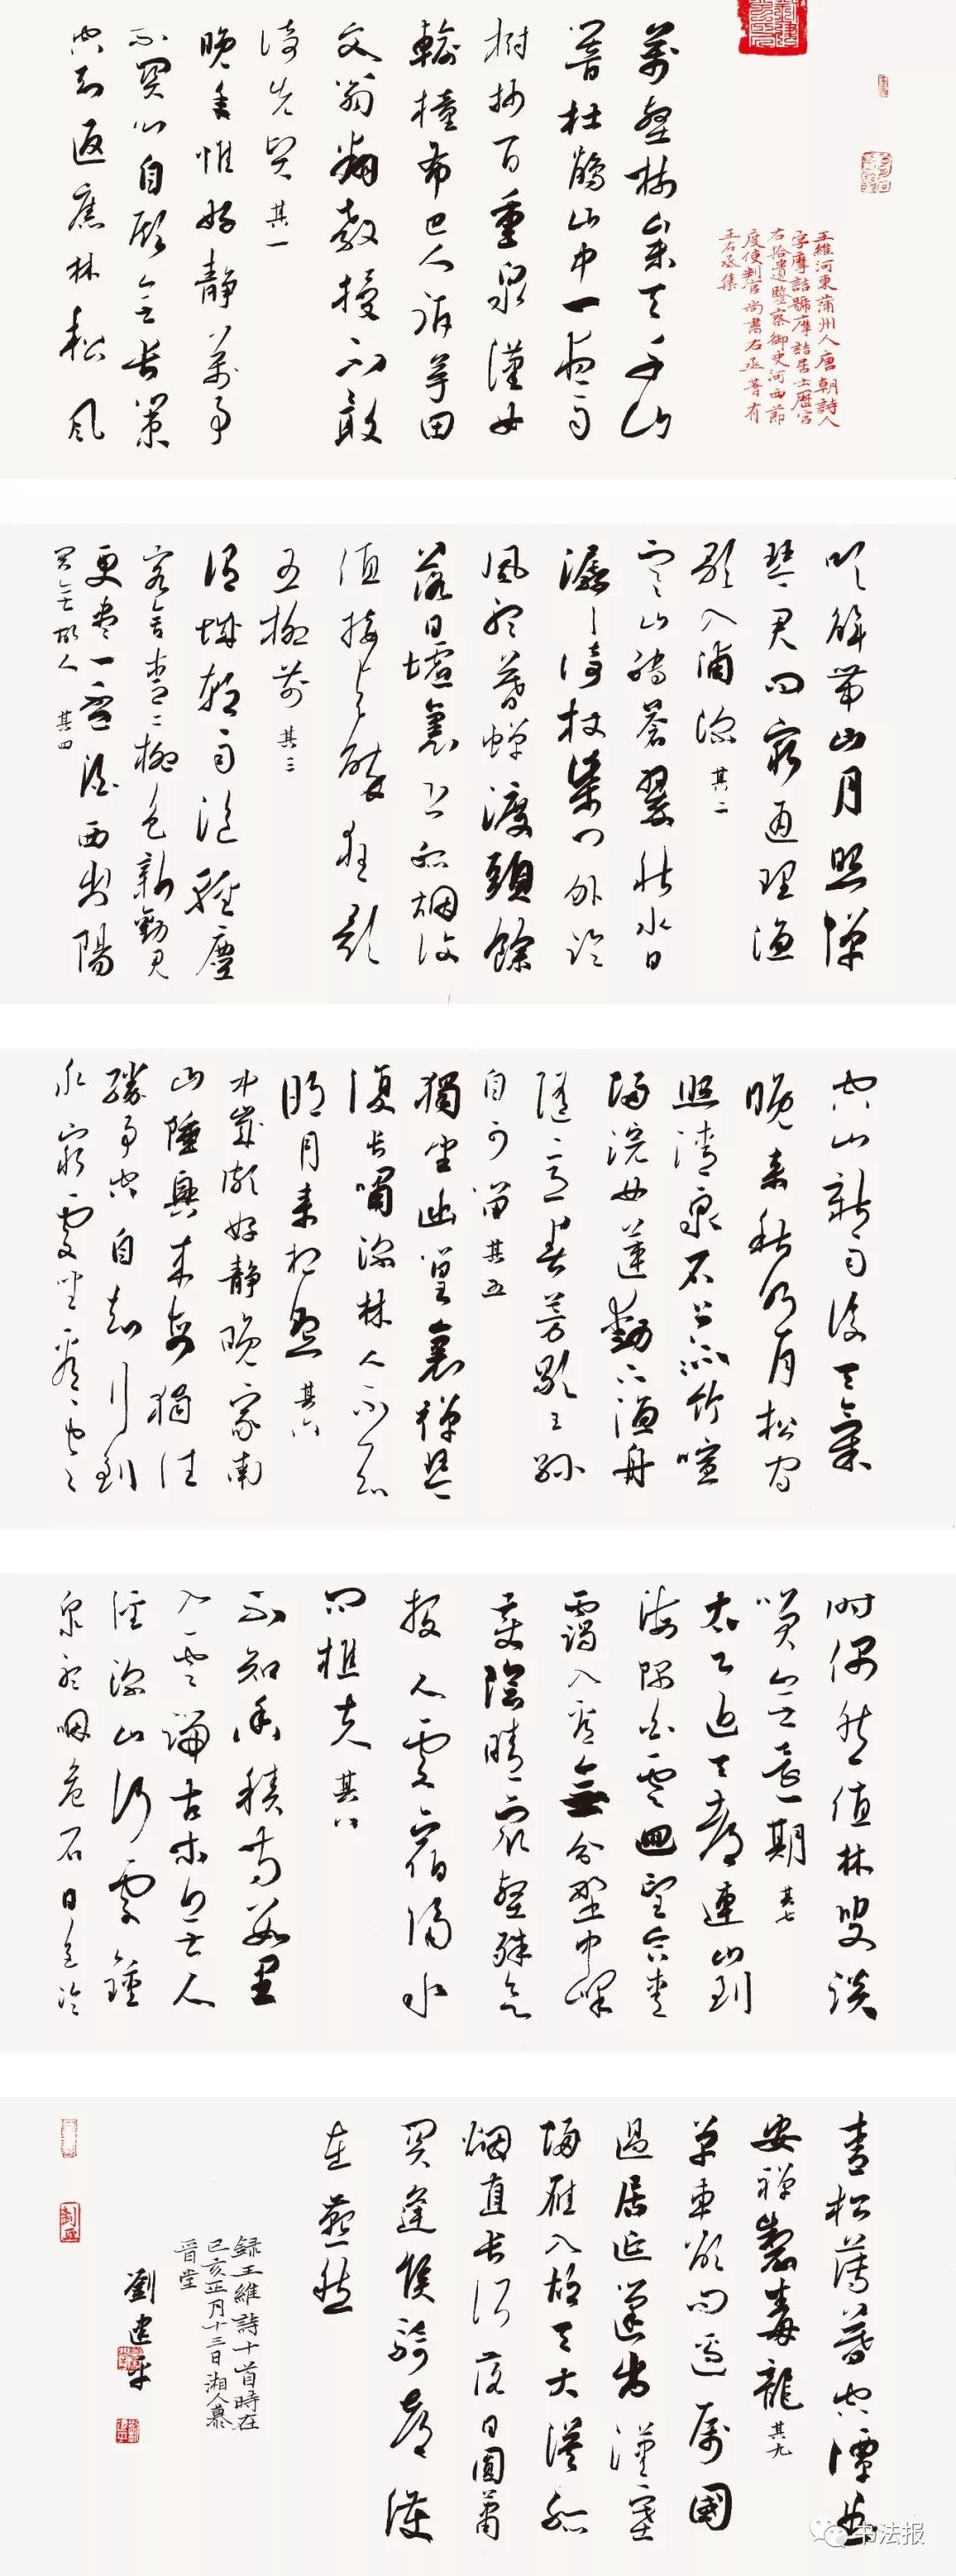 王維河東蒲州人唐朝詩人
字摩詰號摩詰居士歷官
右拾遺監察御史河西節
度使判官尚書右丞著有
王右丞集
萬壑樹參天千山
響杜鵑山中一夜雨
樹杪百重泉漢女
輸橦布巴人訟芋田
文翁翻教授不敢
倚先賢 其一
晚年惟好靜萬事
不關心自顧無長策
空知返舊林松風
吹解帶山月照彈
琴君問窮通理漁
歌入浦深 其二
寒山轉蒼翠秋水日
潺湲倚杖柴門外臨
風聽暮蟬渡頭餘
落日墟裏上孤烟復
值接輿醉狂歌
五柳前 其三
渭城朝雨浥輕塵
客舍青青柳色新勸君
更盡一杯酒西出陽
關無故人 其四
空山新雨後天氣
晚來秋明月松間
照清泉石上流竹喧
歸浣女蓮動下漁舟
隨意春芳歇王孫
自可留 其五
獨坐幽篁裏彈琴
復長嘯深林人不知
明月來相照 其六
中歲頗好靜晚家南
山陲興來每獨往
勝事空自知行到
水窮處坐看雲起
時偶然值林叟談
笑無還期 其七
太乙近天都連山到
海隅白雲迴望合青
靄入看無分野中峰
變陰晴衆壑殊欲
投人處宿隔水
問樵夫 其八
不知香積寺數里
入雲峰古木無人
徑深山何處鐘
泉聲咽危石日色冷
青松薄暮空潭曲
安禪製毒龍 其九
單車欲問邊屬國
過居延征蓬出漢塞
歸雁入胡天大漠孤
烟直長河落日圓蕭
關逢候騎都護
在燕然
録王維詩十首時在
己亥正月十三日湘人慕
晉堂
劉建平
书法报